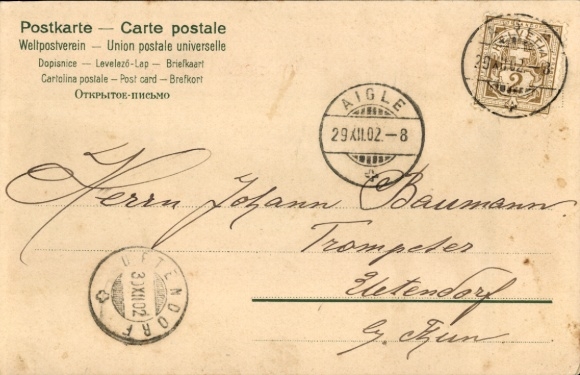 Postkarte — Carte postale
Weltpostverein — Union postale universelle
Dopisnice — Levelező-Lap — Briefkaart
Cartolina postale — Post card — Brefkort
Открытое-письмо
HELVETIA
29.XII.02.-8
2
AIGLE
29.XII.02.-8
Herrn Johann Baumann
Trompeter
Uetendorf
b/ Thun
UETENDORF
30.XII.02